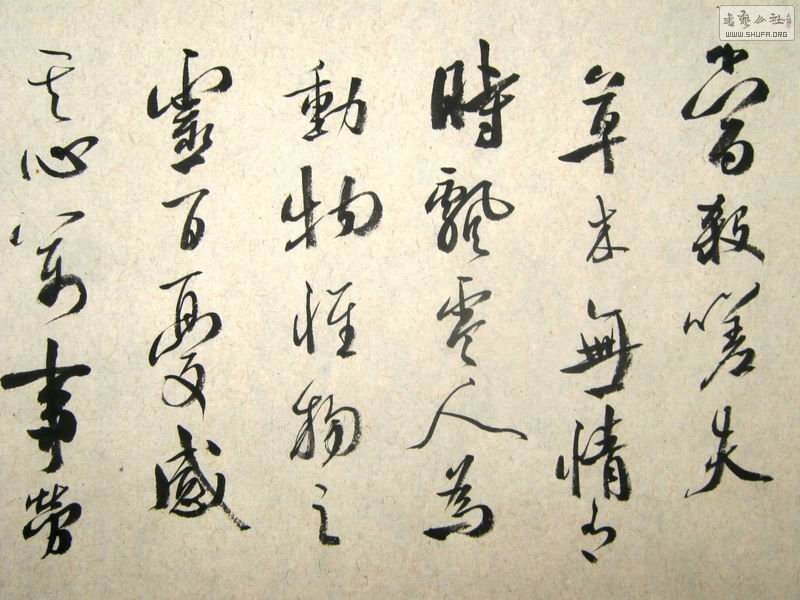 當殺嗟夫
草木無情有
時飄零人為
動物惟物之
靈百憂感
其心萬事勞
書藝公社
WWW.SHUFA.ORG